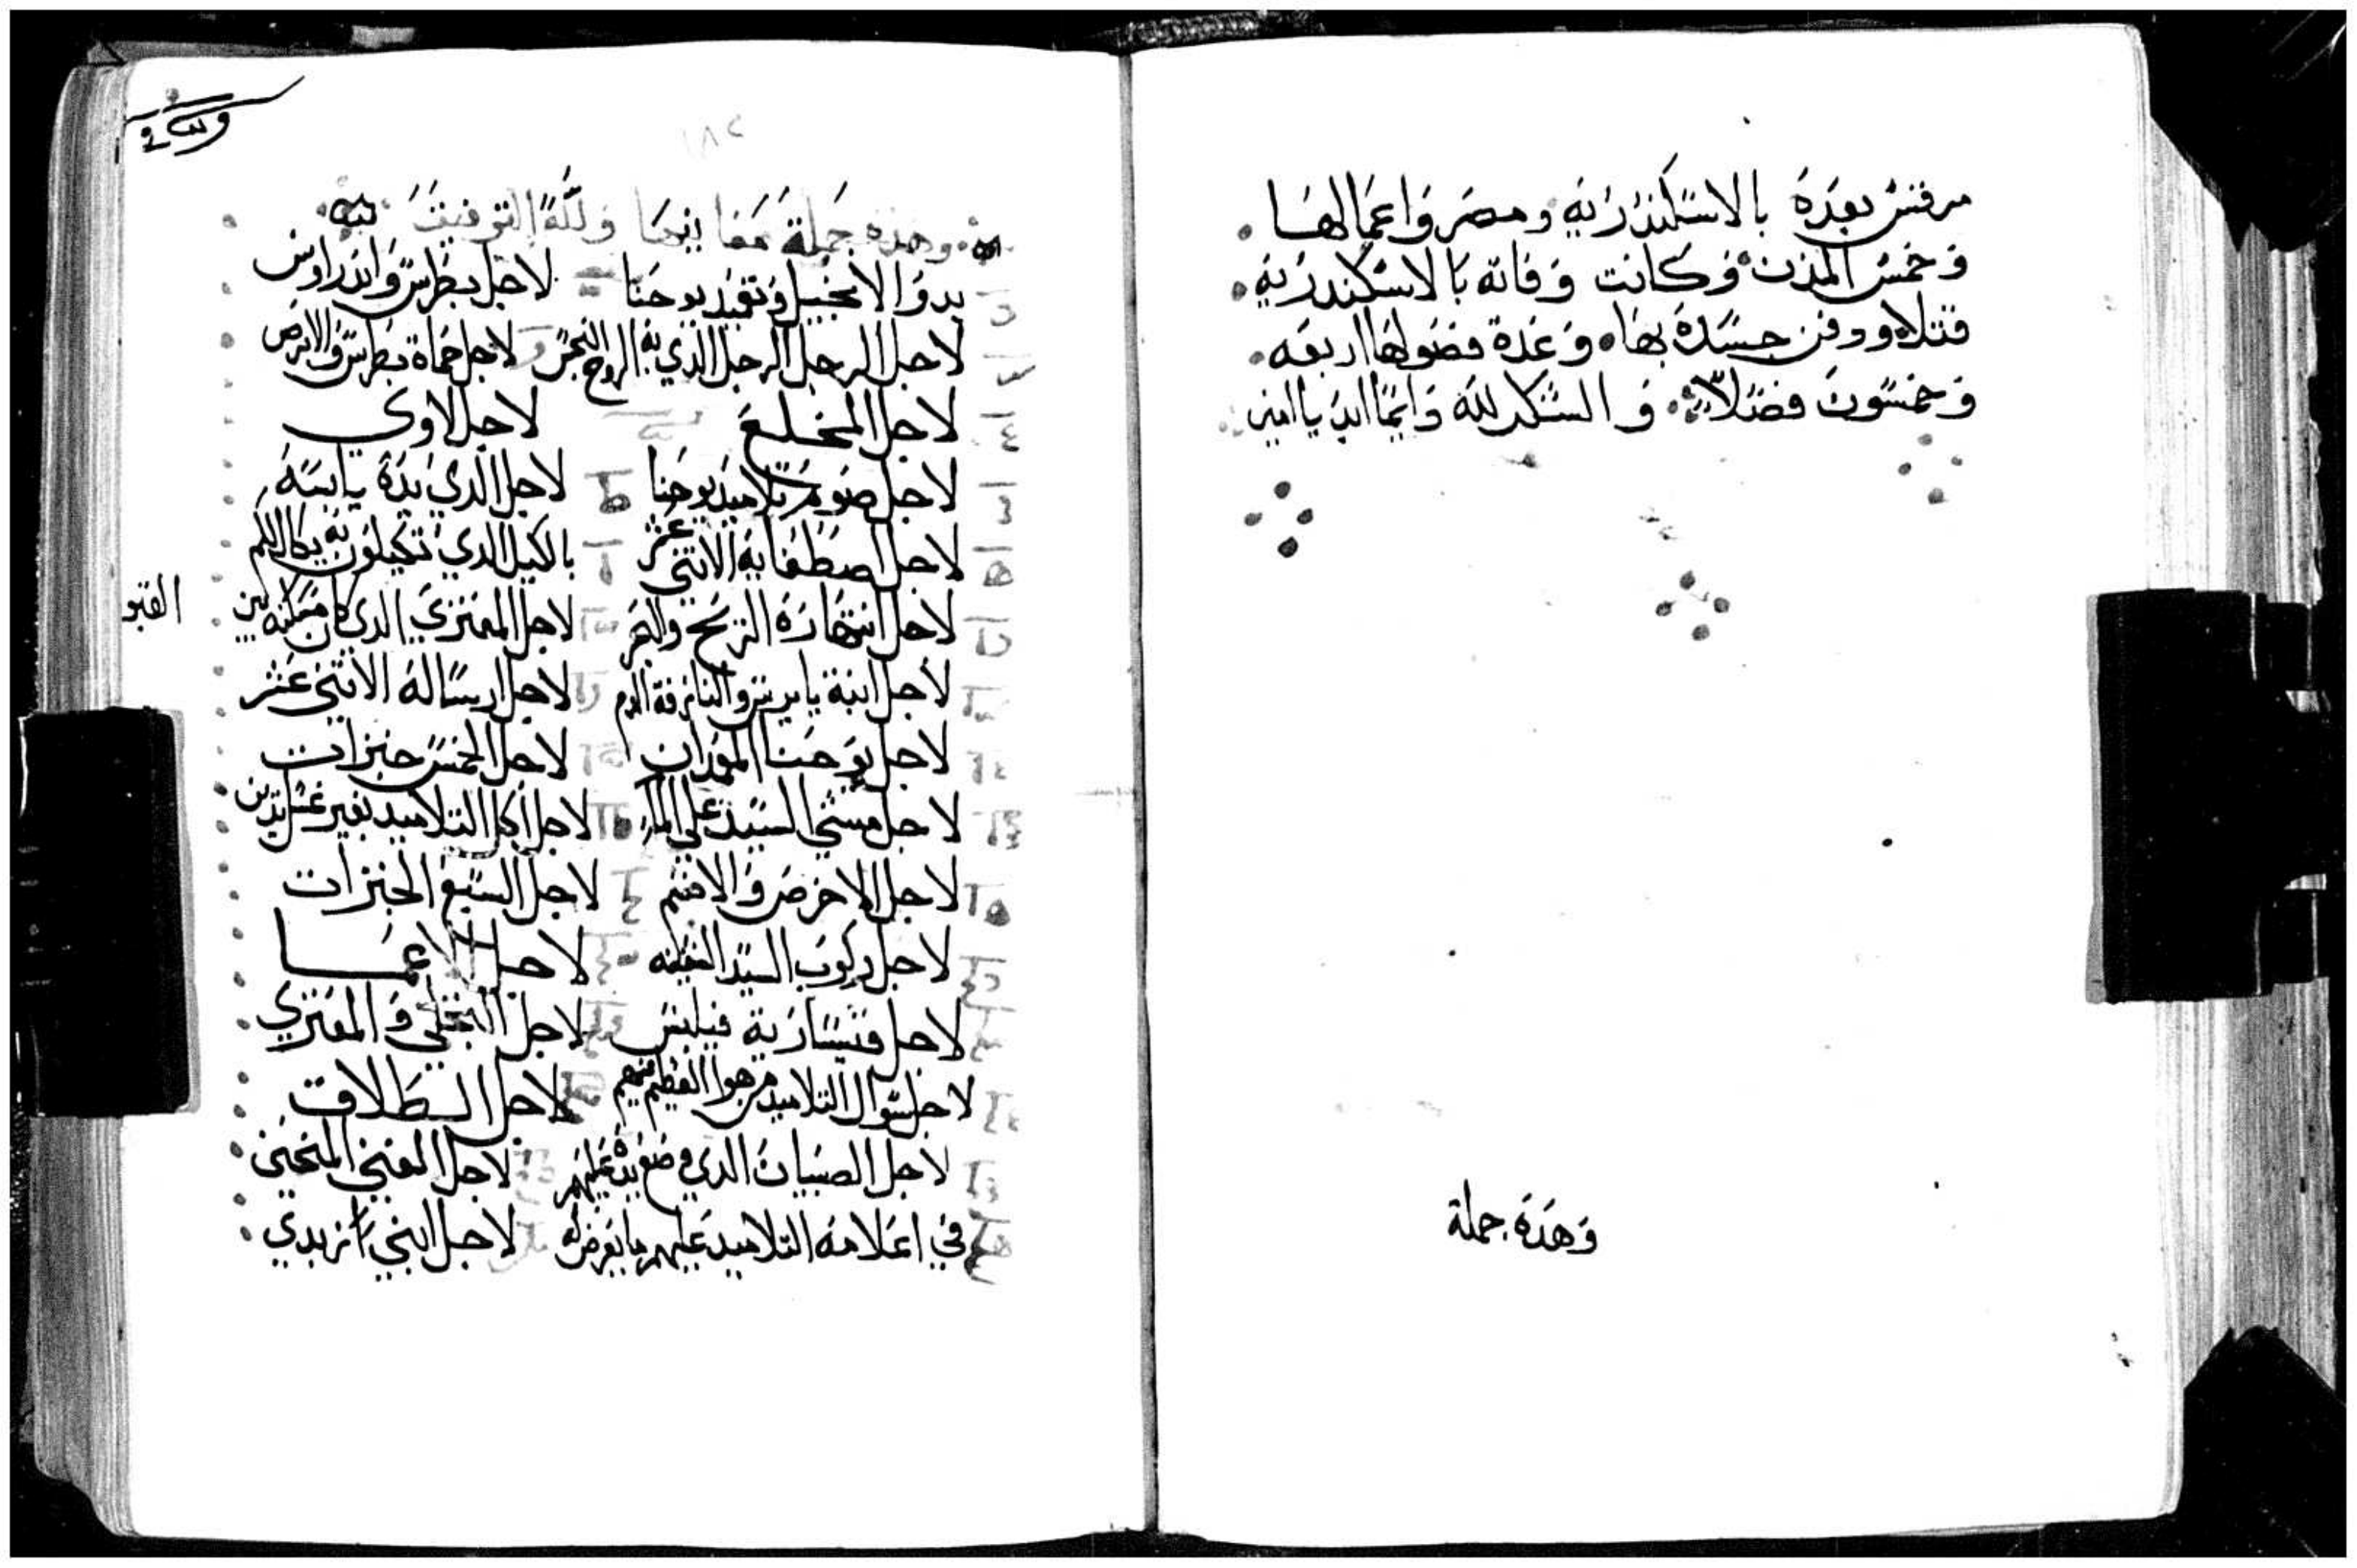 مرقس بعده بالاسكندريه ومصر واعمالها
وخمس المدن وكانت وفاته بالاسكندريه
قتلا ودفن جسده بها وعدة فصولها اربعه
وخمسون فصلا والشكر لله دايما ابدا امين
وهده جملة
وهذه جملة معانيها ولله التوفيق
بدو الانجيل وتعميد يوحنا لاجل بطرس واندراوس
لاجل الرجل الرجل الذي به الروح النجس لاجل حماة بطرس والابرص
لاجل المخلع لاجل لاوي
لاجل صوم تلاميد يوحنا لاجل الدي يده يابسه
لاجل اصطفايه الاتنى عشر بالكيل الدي تكيلون به يكال لكم
لاجل انتهاره الريح والبحر لاجل المعتري الدي كان مسكنه بين
القبو
لاجل ابنة يايرس والنازفة الدم لاجل ارساله الاتنى عشر
لاجل يوحنا المعمدان لاجل الخمس خبزات
لاجل مشي السيد على الما لاجل اكل التلاميد بغير غسل يدين
لاجل الاخرص والاصم لاجل السبع الخبزات
لاجل ركوب السيد السفينه لاجل الاعمـا
لاجل قيسارية فيلبس لاجل التجلي والمعتري
لاجل سوال التلاميد من هوا العظيم فيهم لاجل الطلاق
لاجل الصبيان الدي وضع يده عليهم لاجل الغني الممتحن
في اعلامه التلاميد عليهم ما يعرض له لاجل ابني زبدي